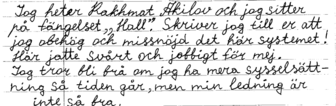 Jag heter Rakhmat Akilov och jag sitter
på fängelset „Hall". Skriver jag till er att
jag obehög och missnöjd det här systemet!
Här jätte svårt och jobbigt för mej.
Jag tror bli bra om jag ha mera sysselsätt-
ning så tiden går, men min ledning är
inte så bra.